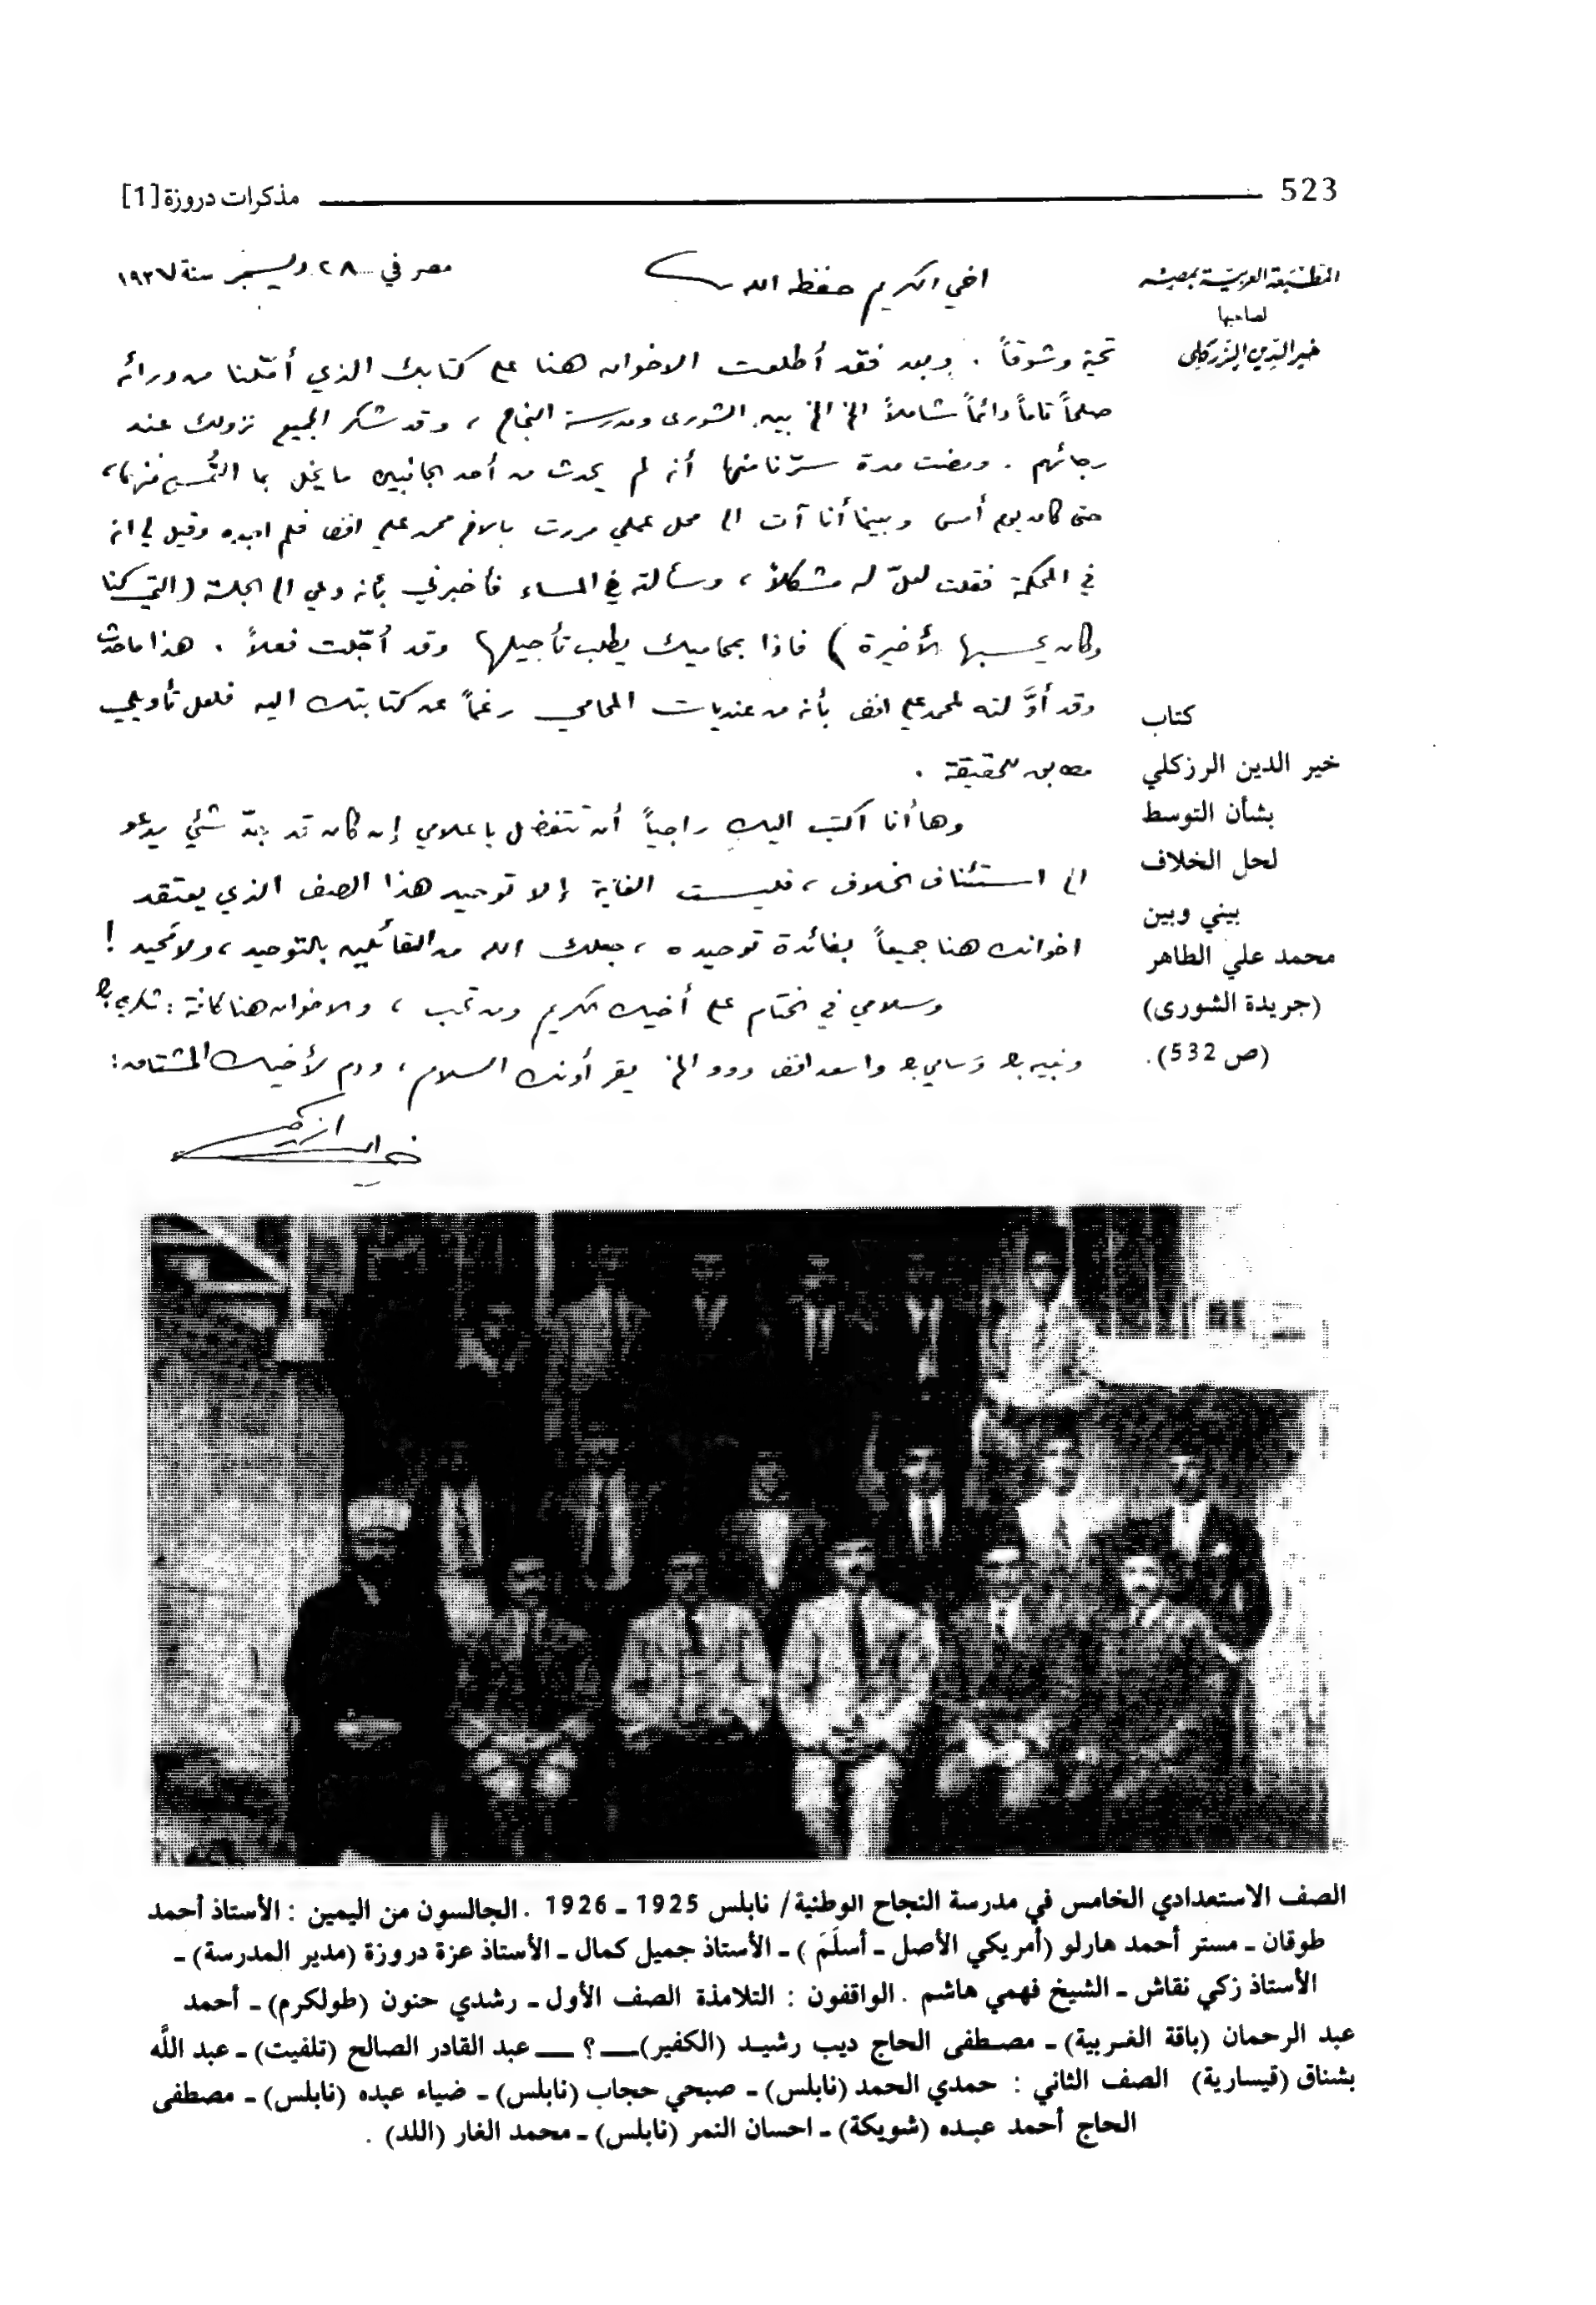 523 مذكرات دروزة [1]
المطبعة العربية بمصر
لصاحبها
خير الدين الزركلي
مصر في ٢٨ ديسمبر سنة ١٩٢٧
اخي الكريم حفظه الله
تحية وشوقاً . وبعد فقد أطلعت الاخوان هنا على كتابك الذي أمّلنا من ورائه
صلحاً تاماً دائماً شاملاً الخ الخ بين الشورى ومدرسة النجاح ، وقد شكر الجميع نزولك عند
رجائهم . ومضت مدة سرّنا منها أنه لم يحدث من أحد الجانبين ما يخل بما
حتى كان يوم أمس وبينما أنا آت الى محل عملي مررت بالاخ محمد علي افندي فلم اجده وقيل لي انه
في المحكمة فقلت لعلّ له مشكلاً ، وسألته في المساء فأخبرني بأنه دعي الى الجلسة (التي كنا
وكان يحسبها الأخيرة) فاذا بمحاميك يطلب تأجيلها وقد أُجّلت فعلاً . هذا ماحدث
وقد أوَّلته لمحمد علي افندي بأنه من عنديات المحامي رغماً عن كتابتك اليه فلعل تأويلي
مطابق للحقيقة .
وها أنا أكتب اليك راجياً أن تتفضل باعلامي إن كان قد جدّ شيء يدعو
الى استئناف الخلاف ، فليست الغاية إلا توحيد هذا الصف الذي يعتقد
اخوانك هنا جميعاً بفائدة توحيده ، جعلك الله من القائلين بالتوحيد ، ولا تحيد !
وسلامي في الختام على أخيك الكريم ومن تحب ، والاخوان هنا كافة : شكري بك
ونبيه بك وسامي بك واسعد افندي الخ يقرأونك السلام ، ودم لأخيك المشتاق :
كتاب
خير الدين الرزكلي
بشأن التوسط
لحل الخلاف
بيني وبين
محمد علي الطاهر
(جريدة الشورى)
(ص 532).
الصف الاستعدادي الخامس في مدرسة النجاح الوطنية/ نابلس 1925 ـ 1926 . الجالسون من اليمين : الأستاذ أحمد
طوقان ـ مستر أحمد هارلو (أمريكي الأصل ـ أسلَمَ ) ـ الأستاذ جميل كمال ـ الأستاذ عزة دروزة (مدير المدرسة) ـ
الأستاذ زكي نقاش ـ الشيخ فهمي هاشم . الواقفون : التلامذة الصف الأول ـ رشدي حنون (طولكرم) ـ أحمد
عبد الرحمان (باقة الغربية) ـ مصطفى الحاج ديب رشيد (الكفير) ـ ؟ ـ عبد القادر الصالح (تلفيت) ـ عبد اللَّه
بشناق (قيسارية) الصف الثاني : حمدي الحمد (نابلس) ـ صبحي حجاب (نابلس) ـ ضياء عبده (نابلس) ـ مصطفى
الحاج أحمد عبده (شويكة) ـ احسان النمر (نابلس) ـ محمد الغار (اللد) .